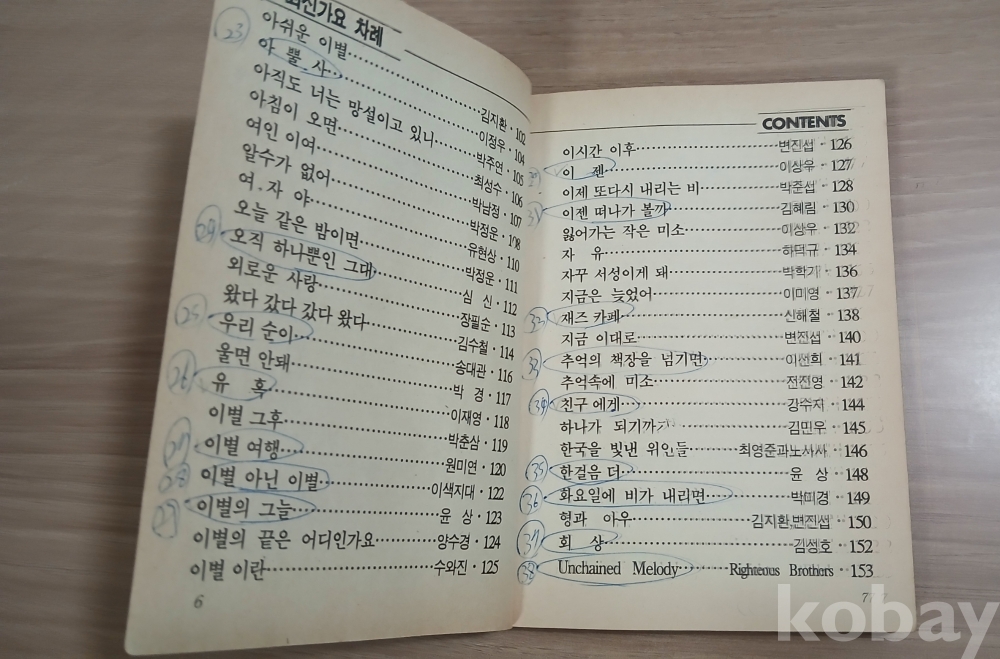 최신가요 차례
23 아쉬운 이별 김지환 · 102
아 뿔 사 이정우 · 104
아직도 너는 망설이고 있니 박주연 · 105
아침이 오면 최성수 · 106
여인 이여 박남정 · 107
알수가 없어 박정운 · 108
여.자 야 유현상 · 110
오늘 같은 밤이면 박정운 · 111
오직 하나뿐인 그대 심 신 · 112
외로운 사랑 장필순 · 113
왔다 갔다 갔다 왔다 김수철 · 114
25 우리 순이 송대관 · 116
울면 안돼 박 경 · 117
26 유 혹 이재영 · 118
이별 그후 박춘삼 · 119
27 이별 여행 원미연 · 120
이별 아닌 이별 이색지대 · 122
이별의 그늘 윤 상 · 123
이별의 끝은 어디인가요 양수경 · 124
이별 이란 수와진 · 125
6
CONTENTS
이시간 이후 변진섭 · 126
이 젠 이상우 · 127
이제 또다시 내리는 비 박준섭 · 128
31 이젠 떠나가 볼까 김혜림 · 130
잃어가는 작은 미소 이상우 · 132
자 유 하덕규 · 134
자꾸 서성이게 돼 박학기 · 136
지금은 늦었어 이미영 · 137
33 재즈 카페 신해철 · 138
지금 이대로 변진섭 · 140
32 추억의 책장을 넘기면 이선희 · 141
추억속에 미소 전진영 · 142
34 친구에게 강수지 · 144
하나가 되기까지 김민우 · 145
한국을 빛낸 위인들 최영준과노사사 · 146
35 한걸음 더 윤 상 · 148
36 화요일에 비가 내리면 박미경 · 149
형과 아우 김지환,변진섭 · 150
37 회 상 김성호 · 152
38 Unchained Melody Righteous Brothers · 153
7
kobay